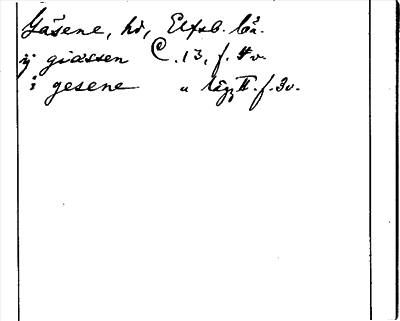 Gäsene, hd, Elfsb. län.
ij giässen C. 13, f. 4 v.
i gesene " f. 3 v.